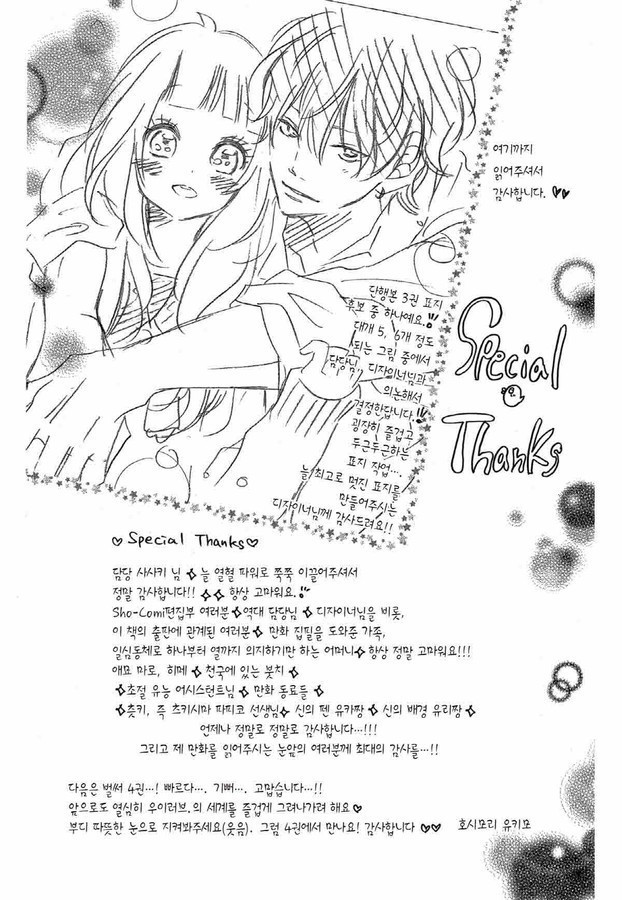 여기까지
읽어주셔서
감사합니다. ♥♥
단행본 3권 표지
후보 중 하나예요.!!
대개 5, 6개 정도
되는 그림 중에서
담당님, 디자이너님과
의논해서
결정한답니다.!!
굉장히 즐겁고
두근두근하는
표지 작업….
늘 최고로 멋진 표지를
만들어주시는
디자이너님께 감사드려요!!
Special
Thanks
♡ Special Thanks ♡
담당 사사키 님 ✧ 늘 열혈 파워로 쭉쭉 이끌어주셔서
정말 감사합니다!! ✧✧ 항상 고마워요.!!
Sho-Comi편집부 여러분 ✧ 역대 담당님 ✧ 디자이너님을 비롯,
이 책의 출판에 관계된 여러분 ✧ 만화 집필을 도와준 가족,
일심동체로 하나부터 열까지 의지하기만 하는 어머니 ✧ 항상 정말 고마워요!!!
애묘 마로, 히메 ✧ 천국에 있는 붓치 ✧
✧ 초절 유능 어시스턴트님 ✧ 만화 동료들 ✧
✧ 츳키, 즉 츠키시마 파피코 선생님 ✧ 신의 펜 유카짱 ✧ 신의 배경 유리짱 ✧
언제나 정말로 정말로 감사합니다…!!!
그리고 제 만화를 읽어주시는 눈앞의 여러분께 최대의 감사를…!!
다음은 벌써 4권…! 빠르다…. 기뻐…. 고맙습니다…!!
앞으로도 열심히 우이러브.의 세계를 즐겁게 그려나가려 해요 ♥
부디 따뜻한 눈으로 지켜봐주세요(웃음). 그럼 4권에서 만나요! 감사합니다 ♥♥ 호시모리 유키모